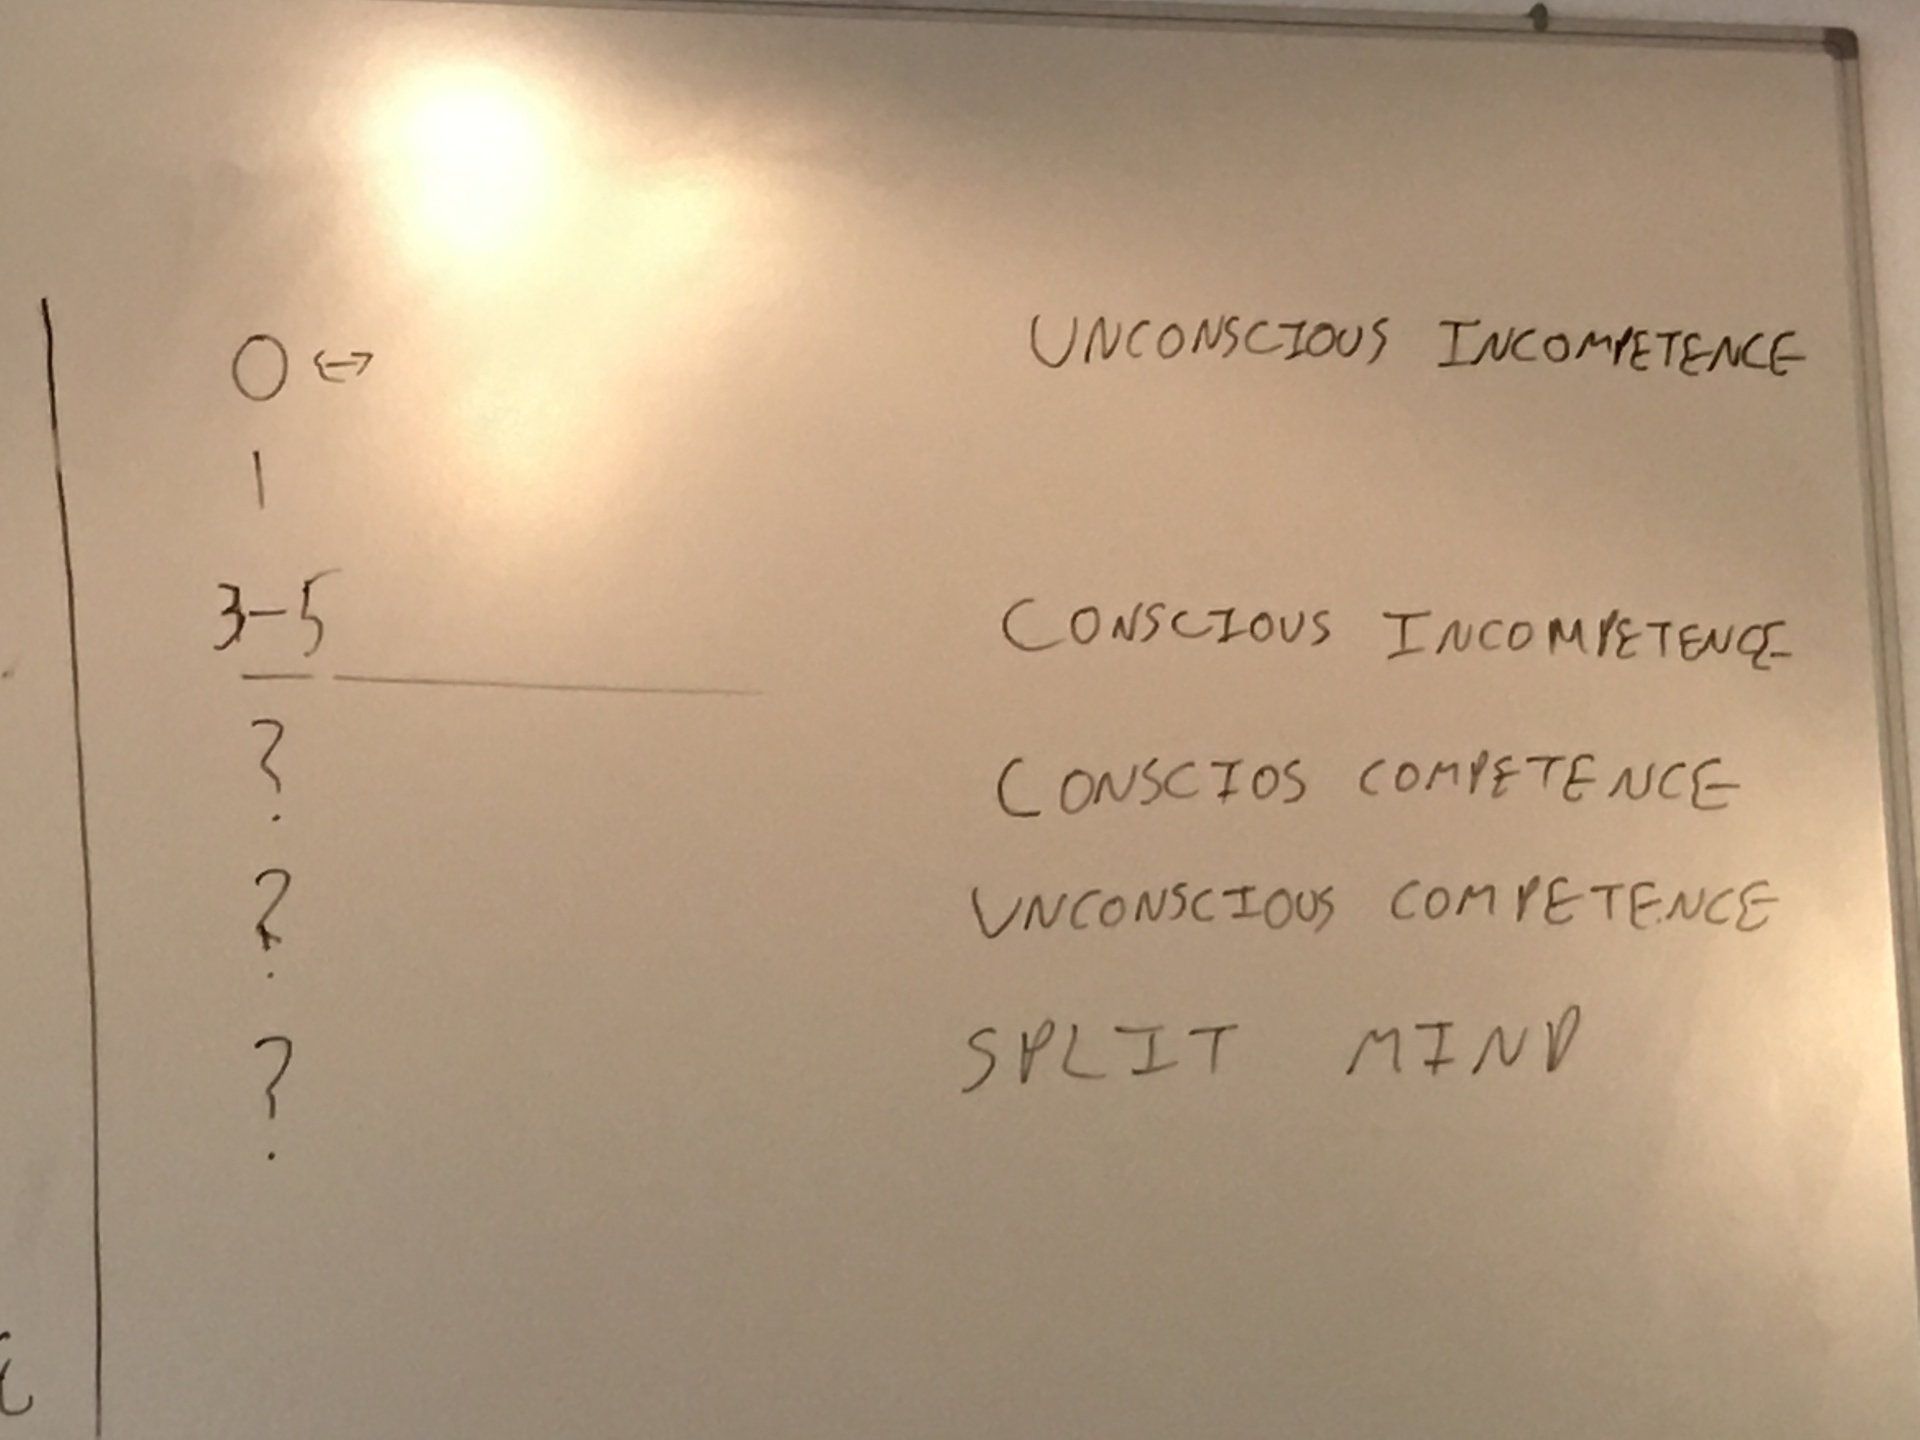 0 <-> UNCONSCIOUS INCOMPETENCE
1
3-5 CONSCIOUS INCOMPETENCE
? CONSCIOS COMPETENCE
? UNCONSCIOUS COMPETENCE
? SPLIT MIND